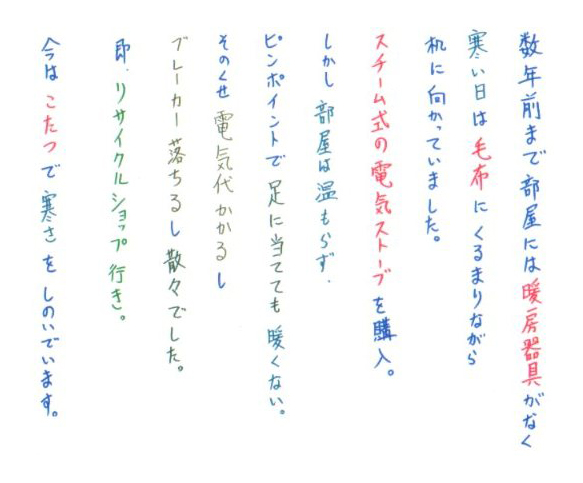 数年前まで部屋には暖房器具がなく
寒い日は毛布にくるまりながら
机に向かっていました。
スチーム式の電気ストーブを購入。
しかし部屋は温もらず、
ピンポイントで足に当てても暖くない。
そのくせ電気代かかるし
ブレーカー落ちるし散々でした。
即、リサイクルショップ行き。
今はこたつで寒さをしのいでいます。